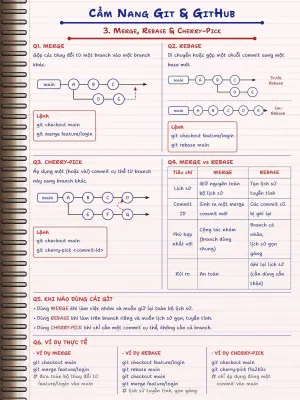 Cẩm Nang Git & GitHub
3. Merge, Rebase & Cherry-Pick
Q1. MERGE
Gộp các thay đổi từ một branch vào một branch
khác.
main
A
B
C
D
E
Lệnh
git checkout main
git merge feature/login
Q2. REBASE
Di chuyển hoặc gộp một chuỗi commit sang một
base mới.
main
A
B
C
D
E
Trước
Rebase
main
A
B
C
D
E
Sau
Rebase
Lệnh
git checkout feature/login
git rebase main
Q3. CHERRY-PICK
Áp dụng một (hoặc vài) commit cụ thể từ branch
này sang branch khác.
main
A
B
C
D
E
F
G
Lệnh
git checkout main
git cherry-pick <commit-id>
Q4. MERGE vs REBASE
Tiêu chí
MERGE
REBASE
Lịch sử
Giữ nguyên toàn
bộ lịch sử
Tạo lịch sử
tuyến tính
Commit
ID
Sinh ra một merge
commit mới
Các commit cũ
bị ghi lại
Phù hợp
nhất với
Cộng tác nhóm
(branch dùng
chung)
Branch cá
nhân,
lịch sử gọn
gàng
Rủi ro
An toàn
Ghi lại lịch sử
(cần dùng cẩn
thận)
Q5. KHI NÀO DÙNG CÁI GÌ?
• Dùng MERGE khi làm việc nhóm và muốn giữ lại toàn bộ lịch sử.
• Dùng REBASE khi làm trên branch riêng và muốn lịch sử gọn, tuyến tính.
• Dùng CHERRY-PICK khi chỉ cần một commit cụ thể, không cần cả branch.
Q6. VÍ DỤ THỰC TẾ
- VÍ DỤ MERGE
git checkout main
git merge feature/login
# đưa toàn bộ thay đổi từ
feature/login vào main
- VÍ DỤ REBASE
git checkout feature/login
git rebase main
git checkout main
git merge feature/login
# lịch sử tuyến tính, gọn gàng
- VÍ DỤ CHERRY-PICK
git checkout main
# chỉ áp dụng một
commit vào main